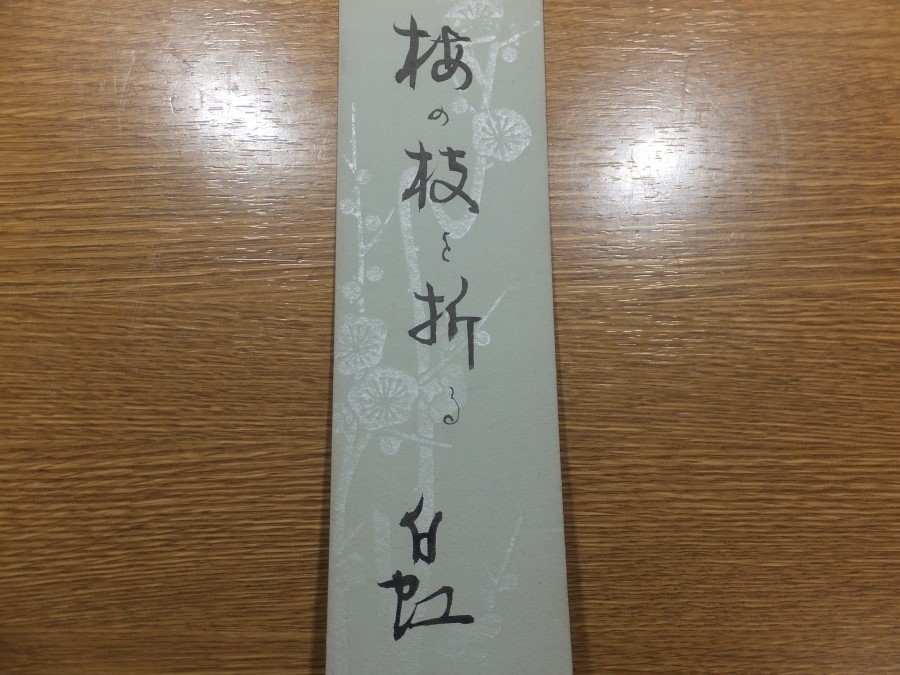 梅の枝を折る
白虹